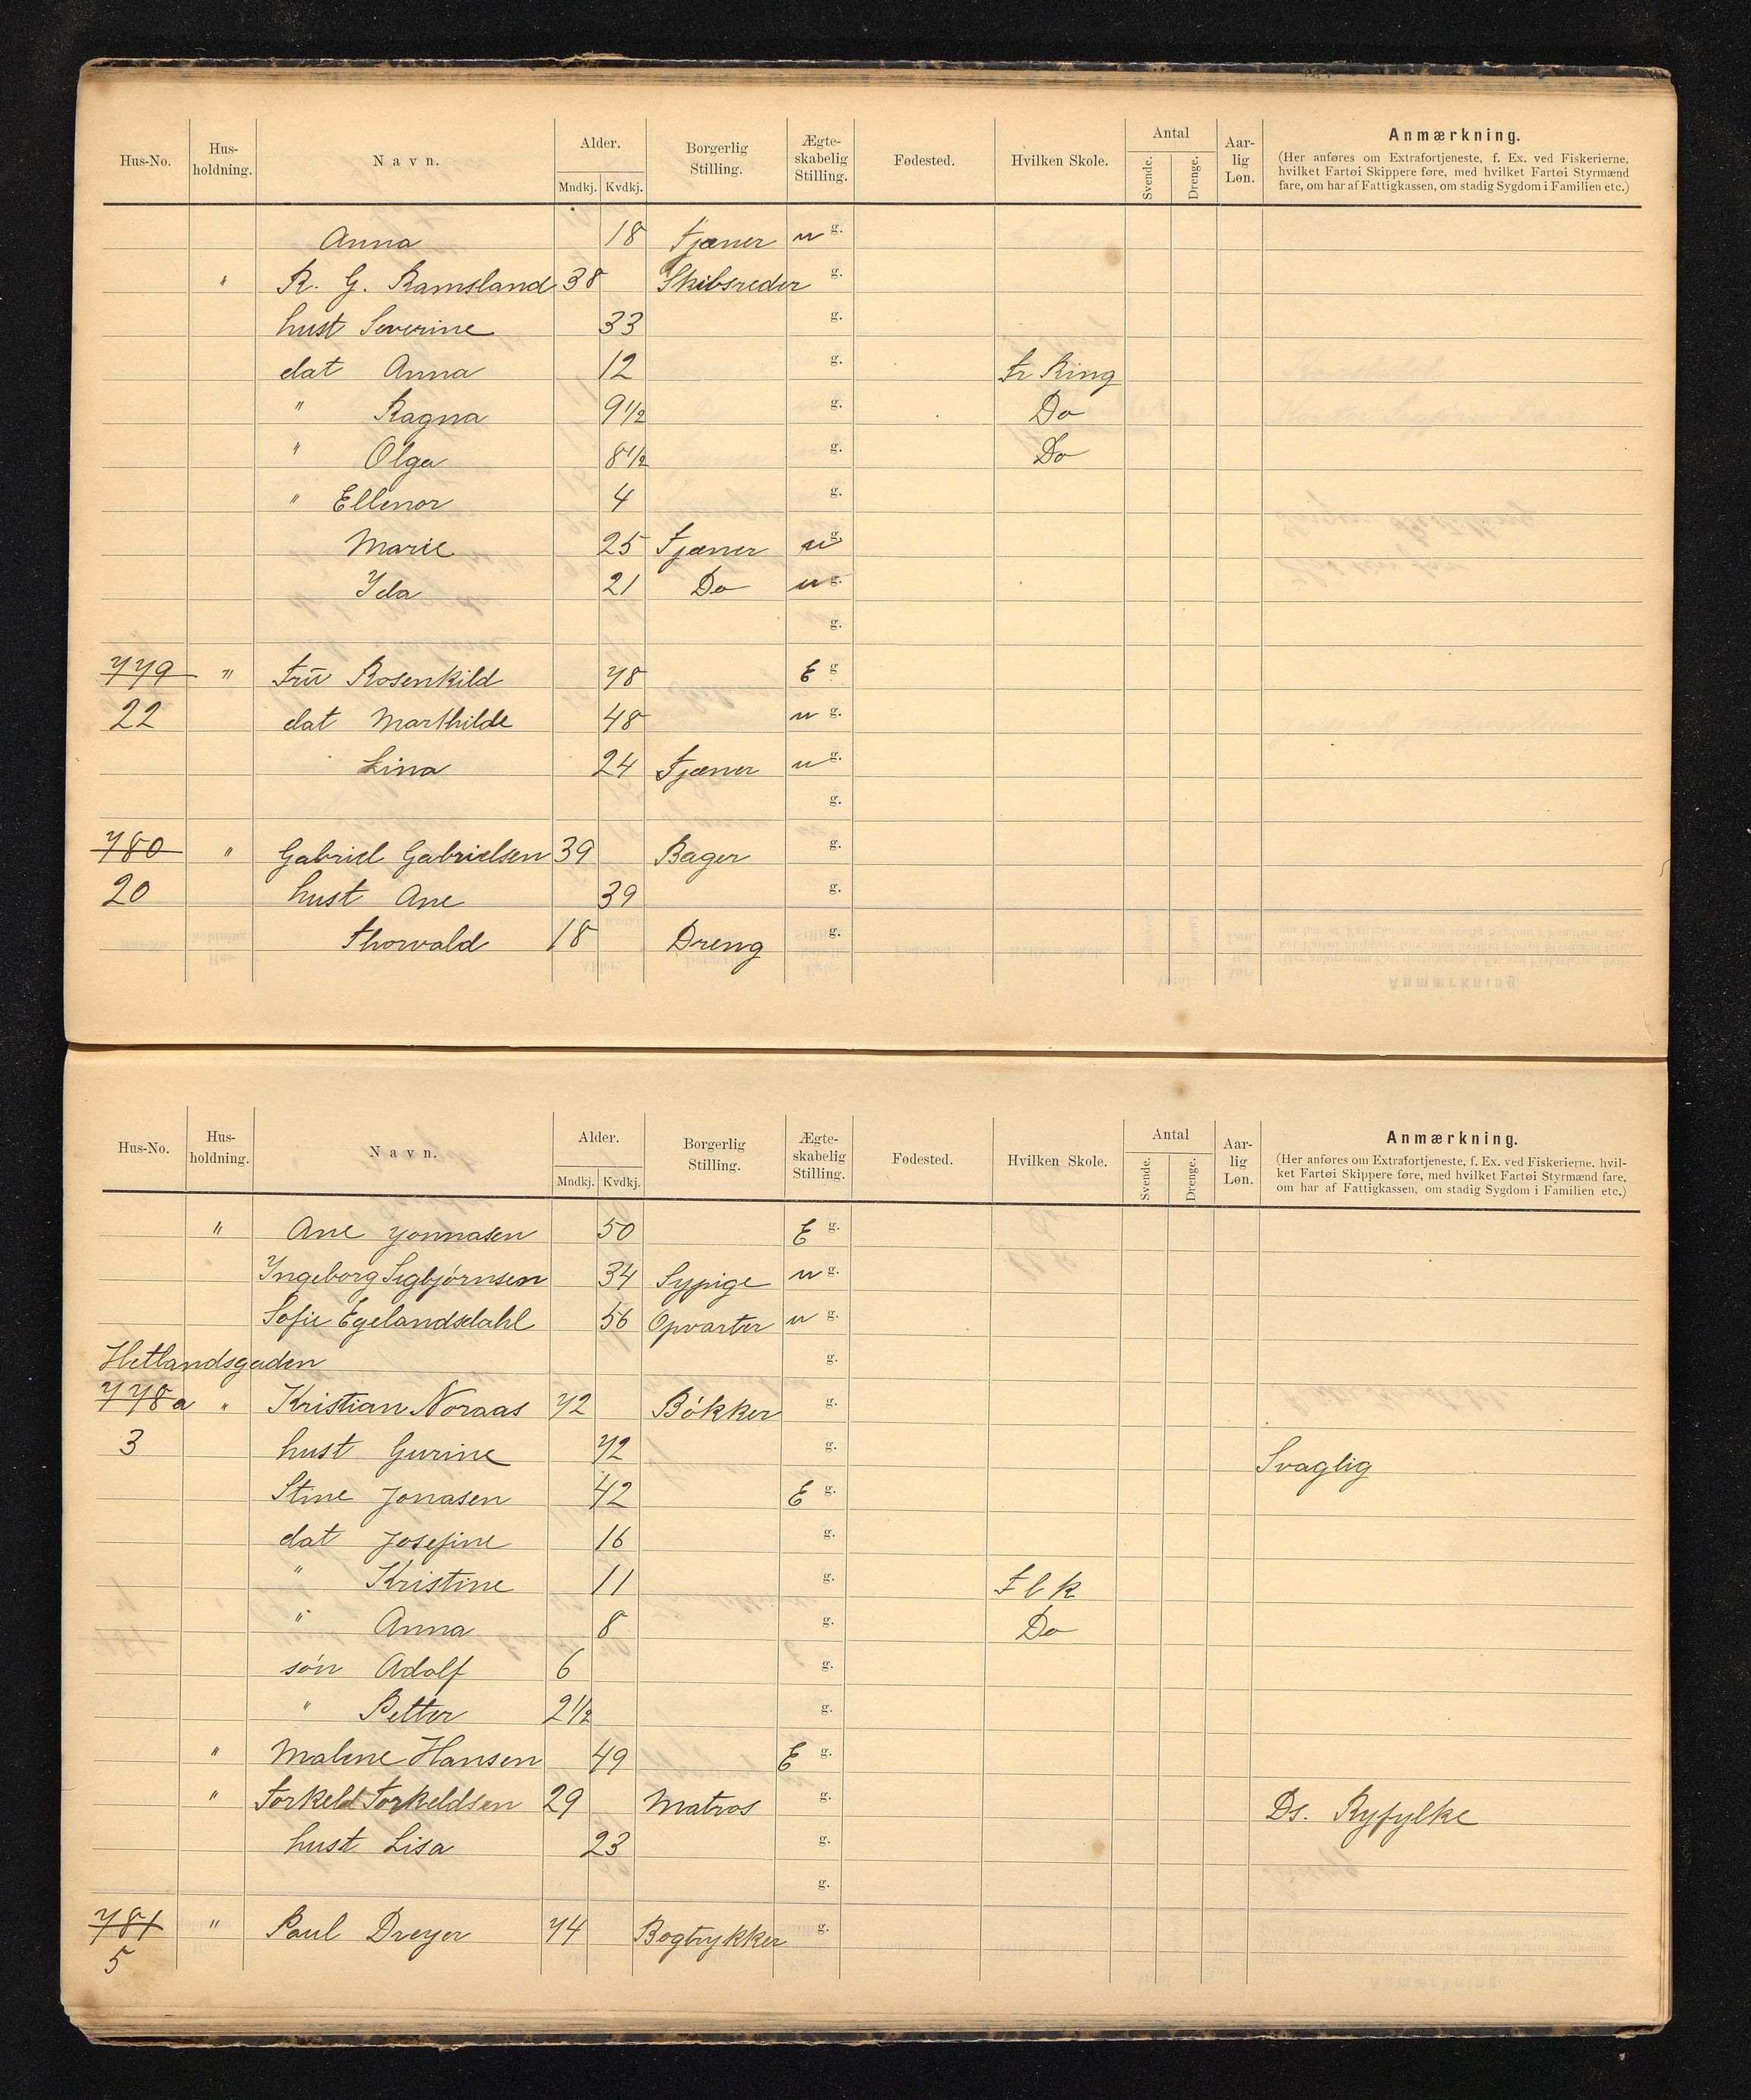 Hus-No. Hus-holdning. Navn. Alder. Mndkj. Kvdkj. Borgerlig Stilling. Ægte-skabelig Stilling. Fødested. Hvilken Skole. Antal Svende. Drenge. Aar-lig Løn. Anmærkning.
(Her anføres om Extrafortjeneste, f. Ex. ved Fiskerierne,
hvilket Fartøi Skippere føre, med hvilket Fartøi Styrmænd
fare, om har af Fattigkassen, om stadig Sygdom i Familien etc.)
Anna 18 Tjæner u g.
" R. G. Ramsland 38 Skibsreder g.
hust Severine 33 g.
dat Anna 12 g. Fr Ring
" Ragna 9 1/2 g. Do
" Olga 8 1/2 g. Do
" Ellenor 4 g.
Marie 25 Tjæner u g.
Ida 21 Do u g.
g.
779 " Fru Rosenkild 78 E g
22 dat Marthilde 48 u g.
Lina 24 Tjæner u g.
g.
780 " Gabriel Gabrielsen 39 Bager g.
20 hust Ane 39 g.
Thorvald 18 Dreng g.
Hus-No. Hus-holdning. Navn. Alder. Mndkj. Kvdkj. Borgerlig Stilling. Ægte-skabelig Stilling. Fødested. Hvilken Skole. Antal Svende. Drenge. Aar-lig Løn. Anmærkning.
(Her anføres om Extrafortjeneste, f. Ex. ved Fiskerierne. hvil-
ket Fartøi Skippere føre, med hvilket Fartøi Styrmænd fare,
om har af Fattigkassen, om stadig Sygdom i Familien etc.)
" Ane Jonnasen 50 E g.
Ingeborg Sigbjørnsen 34 Sypige u g.
Sofie Egelandsdahl 56 Opvarter u g.
Hetlandsgaden g.
778a " Kristian Noraas 72 Bøkker g.
3 hust Gurine 72 g. Svaglig
Stine Jonasen 42 E g.
dat Josefine 16 g.
" Kristine 11 g. F l k
" Anna 8 g. Do
søn Adolf 6 g.
" Petter 2 1/2 g.
" Malene Hansen 49 E g.
" Torkeld Torkeldsen 29 Matros g. Ds. Ryfylke
hust Lisa 23 g.
g.
781 " Paul Dreyer 74 Bogtrykker g.
5